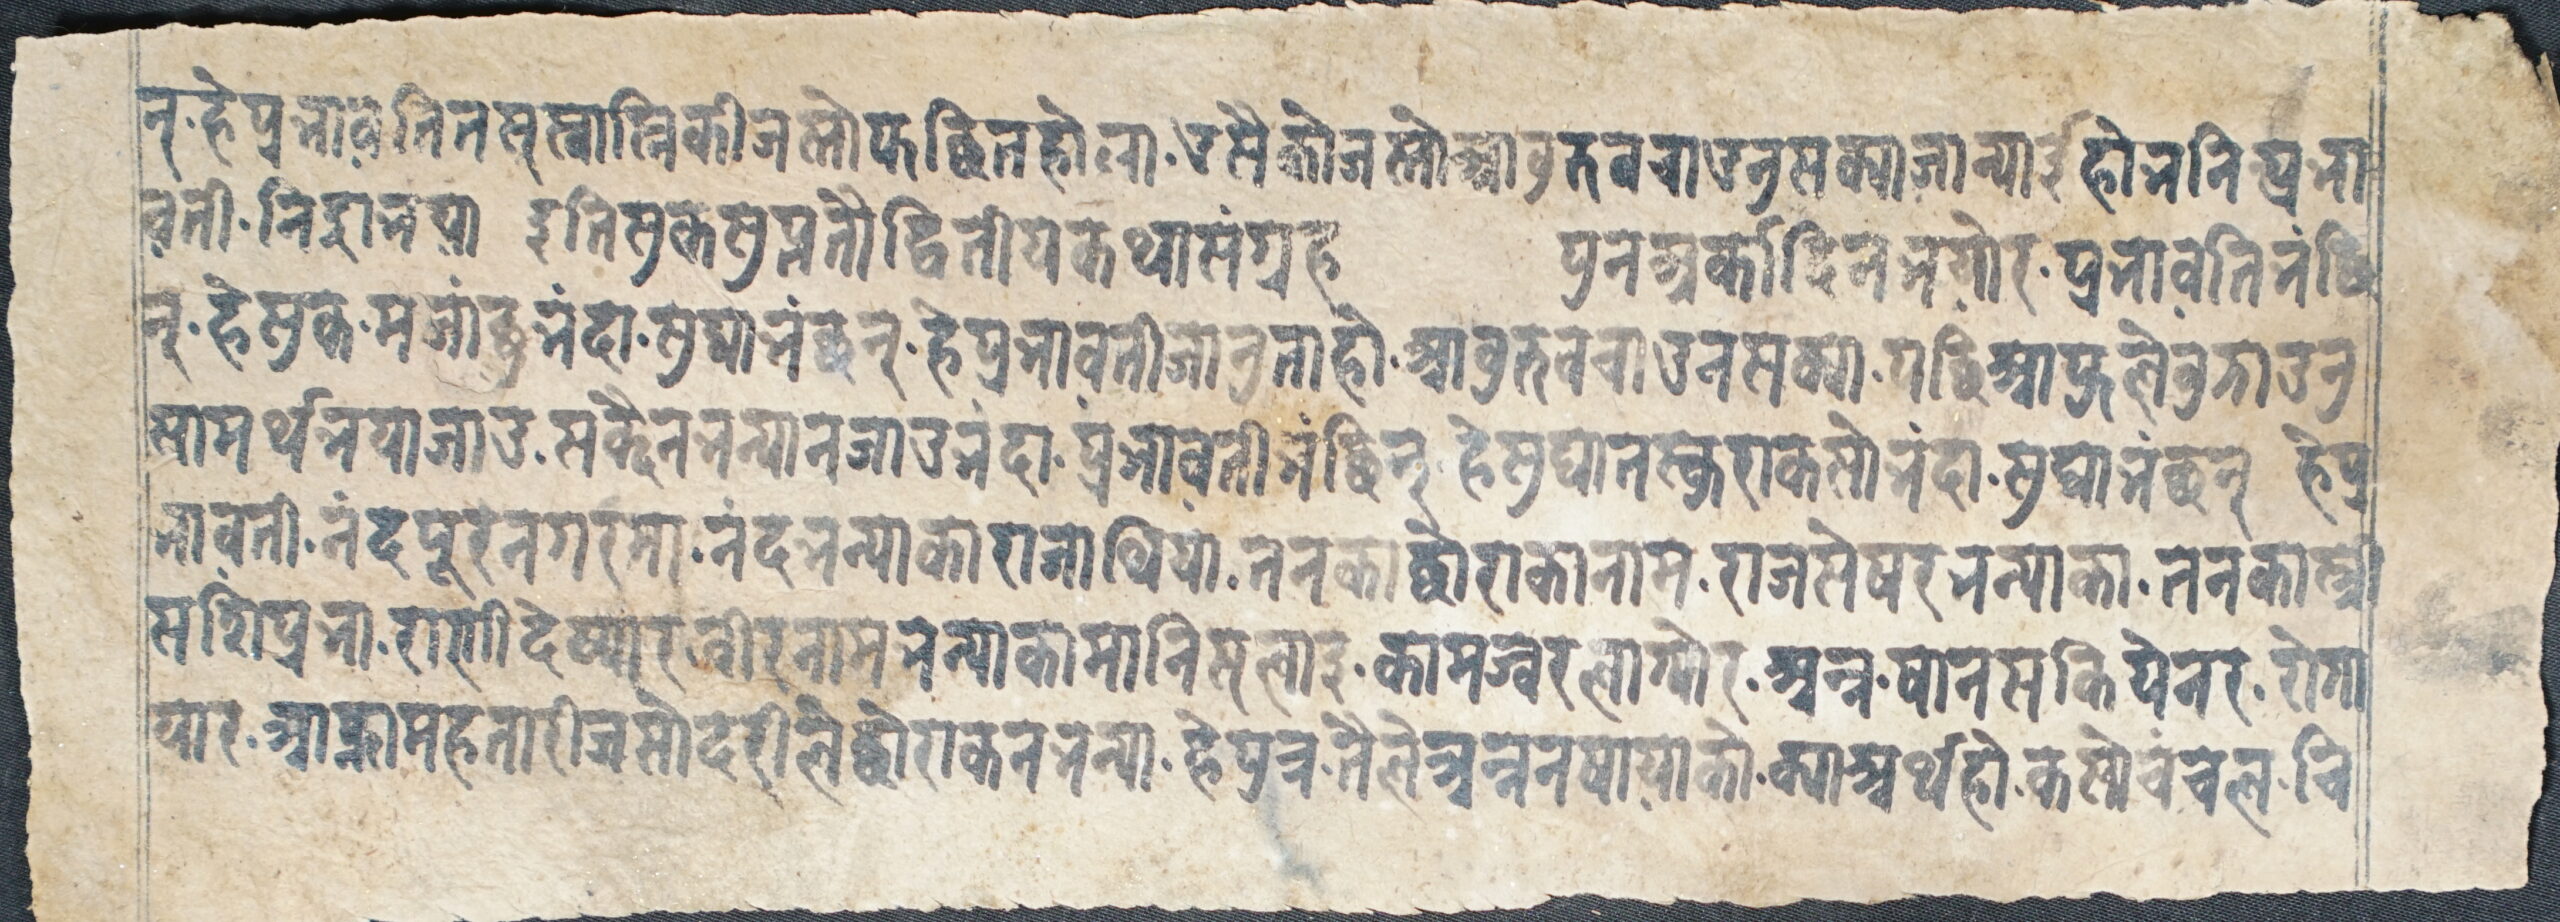 न्. हे प्रभावति नसुस्वास्निकी जस्तो फछितहोला. उसैको जस्तो आवुत वचाउनु सक्या जान्या इ हो भनि प्रभा
वती. निद्रा भया इति सुकसुप्ततौ द्वितीय कथा संग्रह पुन अर्का दिन भयोर. प्रभावति भंछि
न्. हे सुक. म जांछु भंदा. सुघा भंछन्. हे प्रभावती जानु ता हो. आवुत वचाउन सक्या. पछि आफुलै वुझाउनु
सामर्थ भया जाउ. सकदैनन भन्या नजाउ भंदा. प्रभावती भंछिन् हे सुघा तस्को कुरा कसो भंदा. सुघा भंछन् हे प्र
भावती. नंदपूर नगरमा. नंद भन्याका राजा थिया. तनका छोराका नाम. राजसेषर भन्याका. तनका स्त्री
सशिप्रभा. राणी देष्यार वीर नाम भन्याका मानिसलाइ. काम ज्वर लाग्योर. अन्न. षान सकियेनर. रोगा
यार. आफ्ना महतारी जसोदरीलै छोराकन भन्या. हे पुत्र. तैले अन्न नषायाको. क्या अर्थ हो. कस्तो चंचल. चि